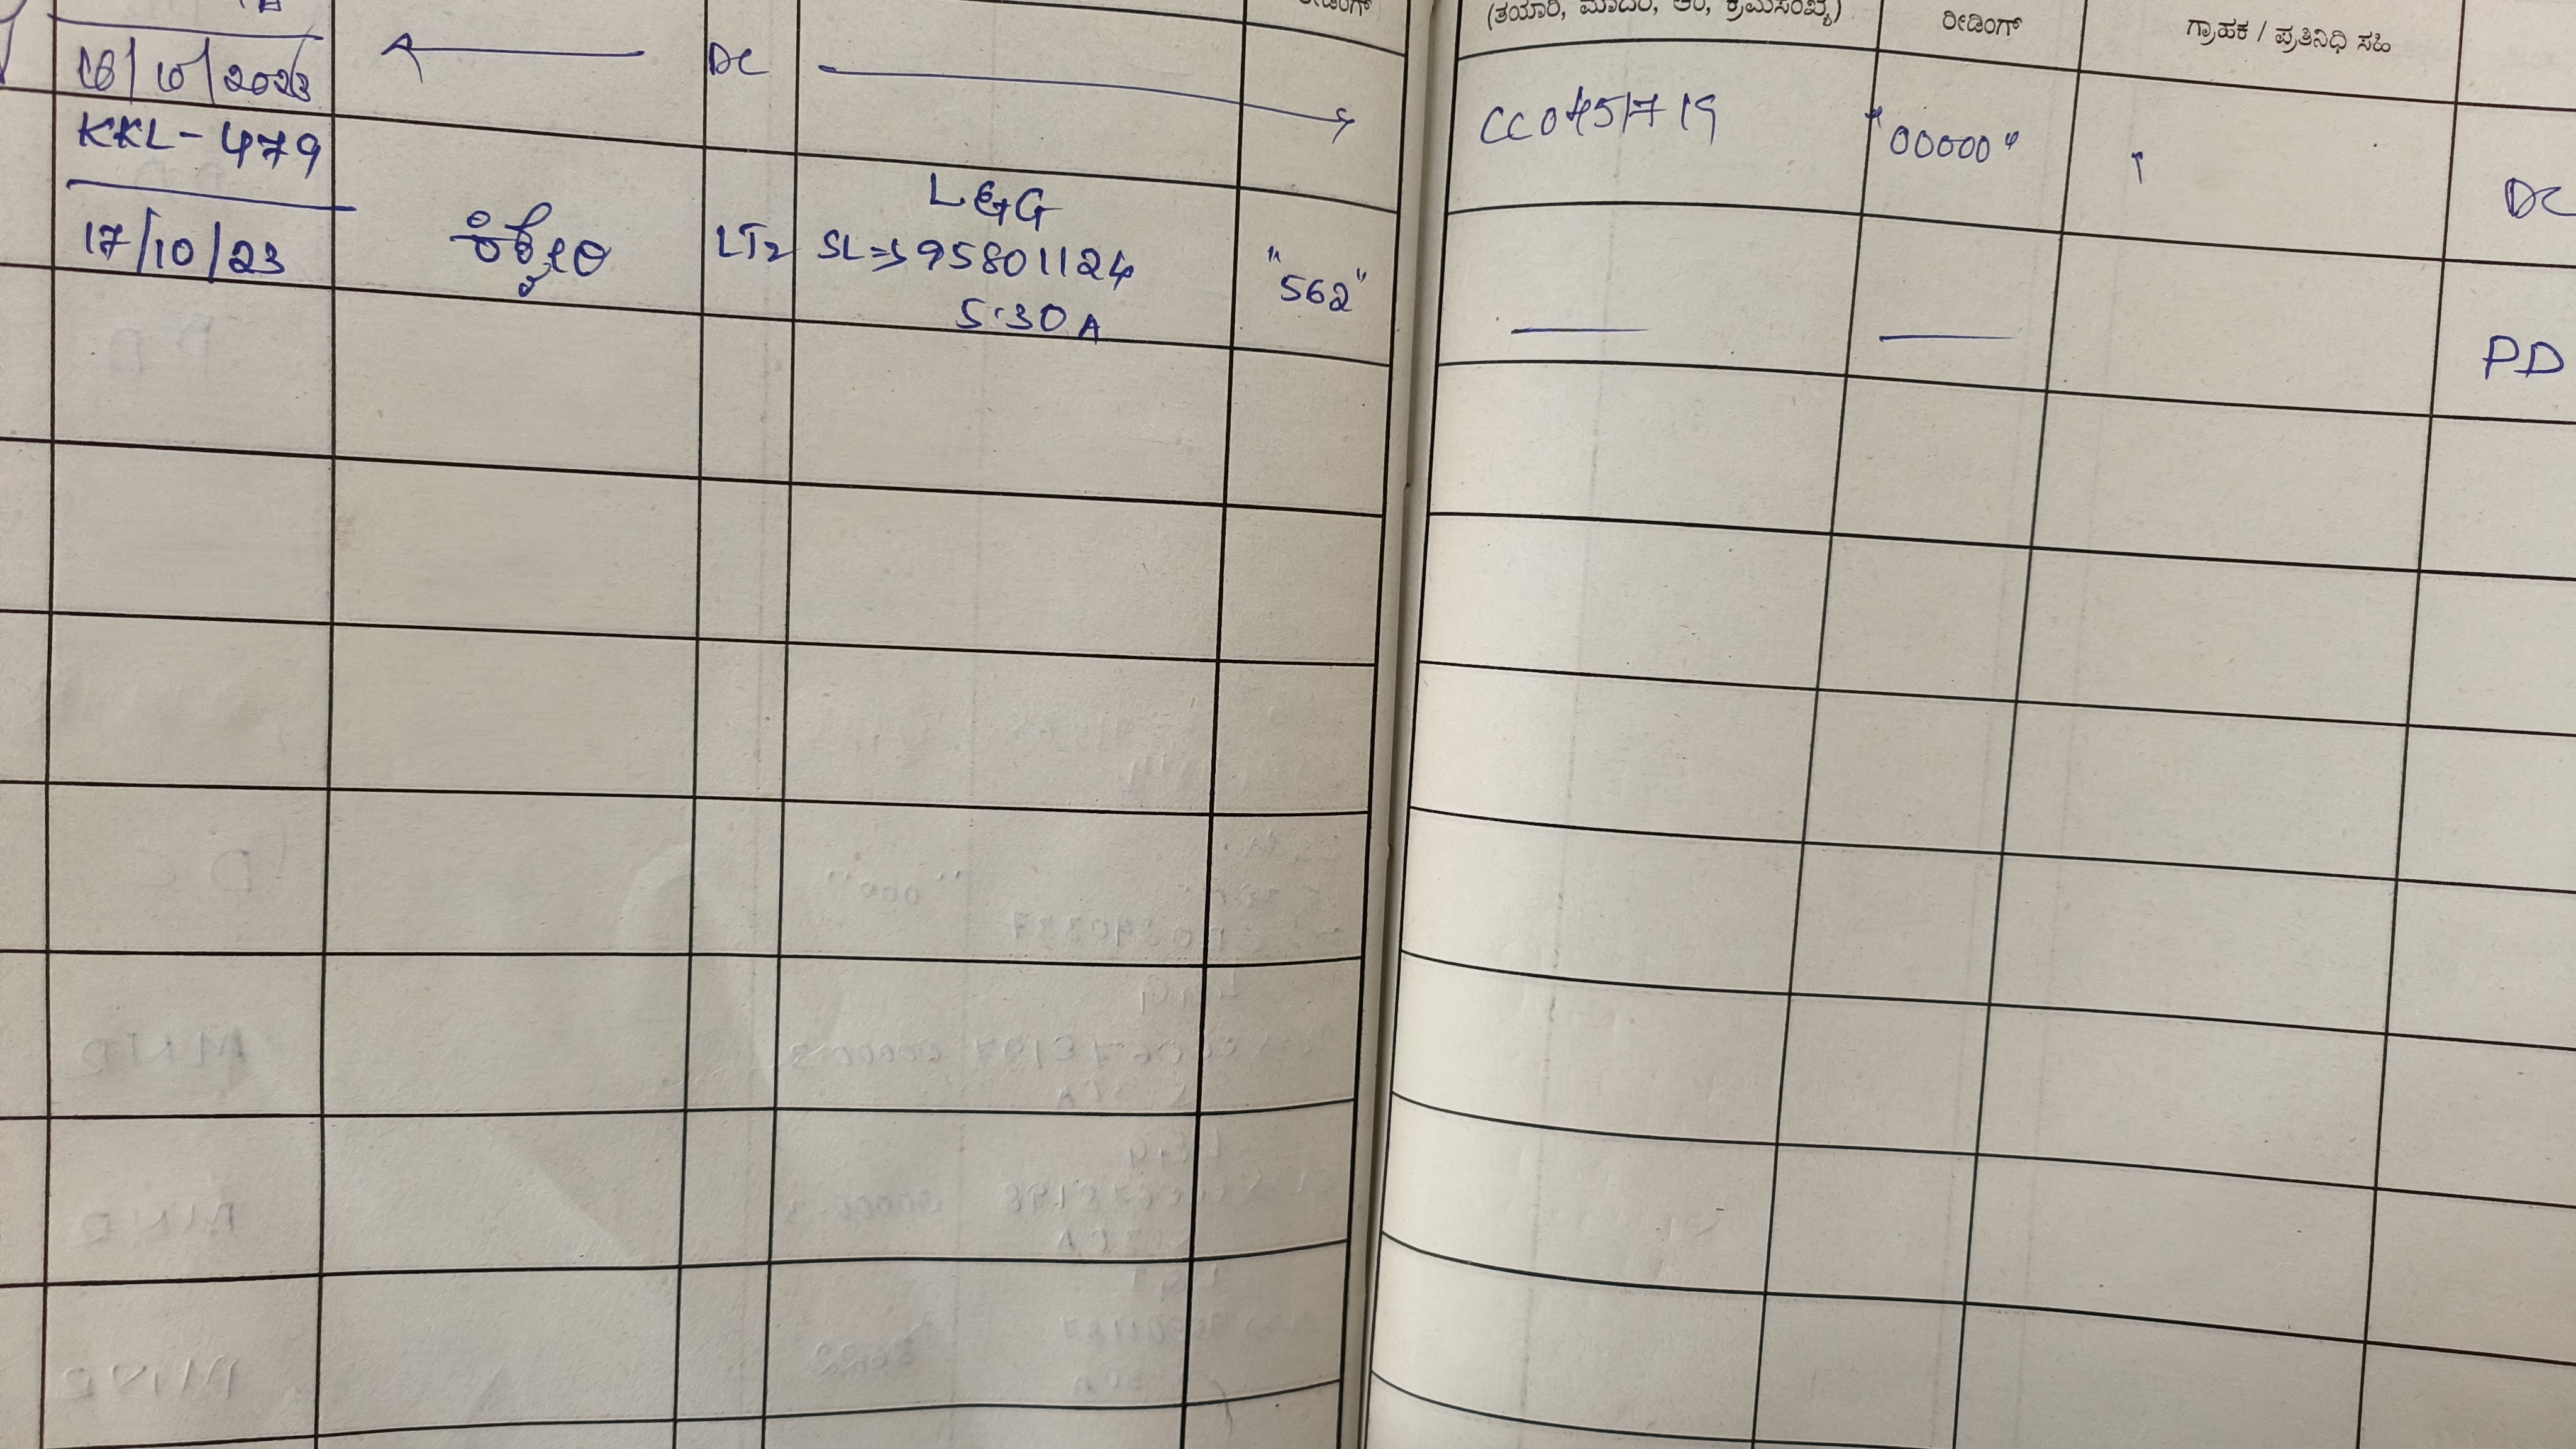 ರೀಡಿಂಗ್
(ತಯಾರಿ, ಮಾದರಿ, ಆಂ, ಕ್ರಮಸಂಖ್ಯೆ)
ರೀಡಿಂಗ್
ಗ್ರಾಹಕ / ಪ್ರತಿನಿಧಿ ಸಹಿ
16/10/2023
DC
CC0451719
"00000"
DC
KKL-479
17/10/23
LT2
L&G
SL⇒95801124
5-30A
"562"
PD